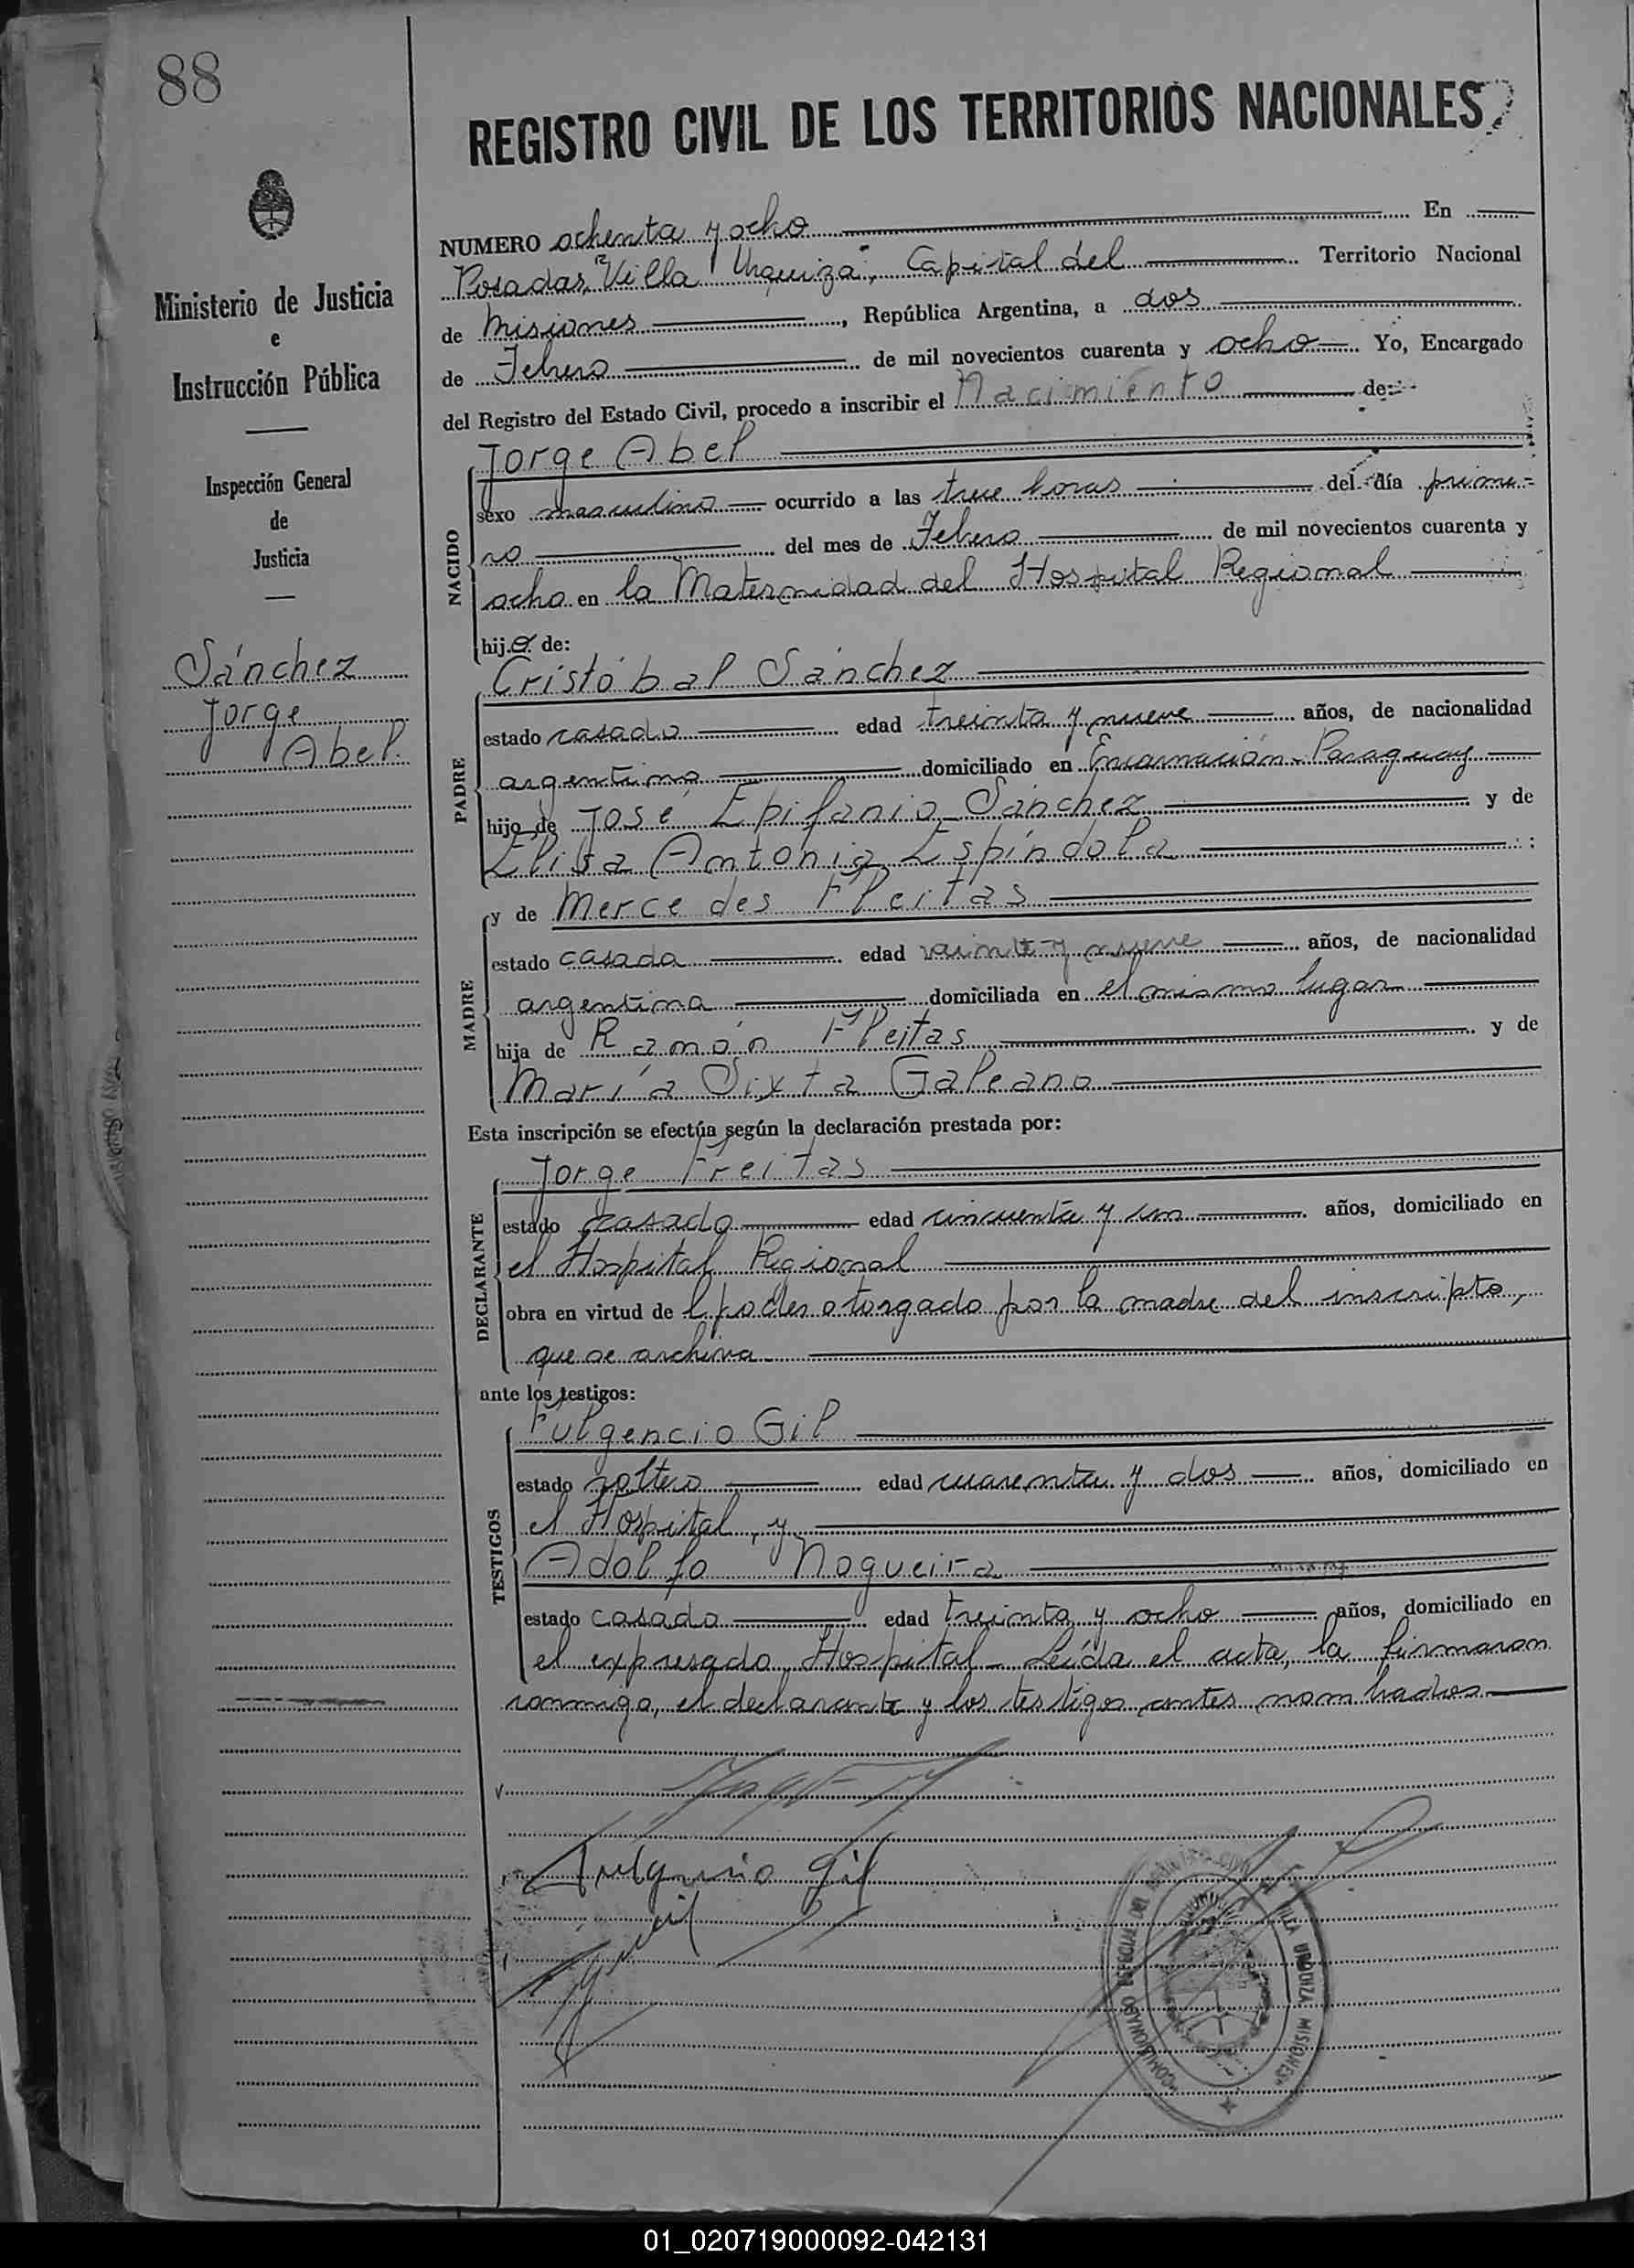 88
REGISTRO CIVIL DE LOS TERRITORIOS NACIONALES
Ministerio de Justicia
e
Instrucción Pública
Inspección General
de
Justicia
Sánchez
Jorge
Abel.
NUMERO ochenta y ocho En
Posadas, "Villa Urquiza", Capital del Territorio Nacional
de Misiones, República Argentina, a dos
de Febrero de mil novecientos cuarenta y ocho Yo, Encargado
del Registro del Estado Civil, procedo a inscribir el Nacimiento de:
NACIDO
Jorge Abel
sexo masculino ocurrido a las trece horas del día prime-
ro del mes de Febrero de mil novecientos cuarenta y
ocho en la Maternidad del Hospital Regional
hijo de:
PADRE
Cristóbal Sánchez
estado casado edad treinta y nueve años, de nacionalidad
argentino domiciliado en Encarnación-Paraguay
hijo de José Epifanio Sánchez y de
Elisa Antonia Espíndola;
MADRE
y de Mercedes Fleitas
estado casada edad veinte y nueve años, de nacionalidad
argentina domiciliada en el mismo lugar
hija de Ramón Fleitas y de
María Sixta Galeano
Esta inscripción se efectúa según la declaración prestada por:
DECLARANTE
Jorge Freitas
estado casado edad cincuenta y un años, domiciliado en
el Hospital Regional
obra en virtud de l poder otorgado por la madre del inscripto,
que se archiva
ante los testigos:
TESTIGOS
Fulgencio Gil
estado soltero edad cuarenta y dos años, domiciliado en
el Hospital, y
Adolfo Nogueira
estado casado edad treinta y ocho años, domiciliado en
el expresado Hospital - Leída el acta, la firmaron
conmigo, el declarante y los testigos antes nombrados
Fulgencio Gil
COMISIONADO ESPECIAL DEL REGISTRO CIVIL
VILLA URQUIZA MISIONES
01_020719000092-042131